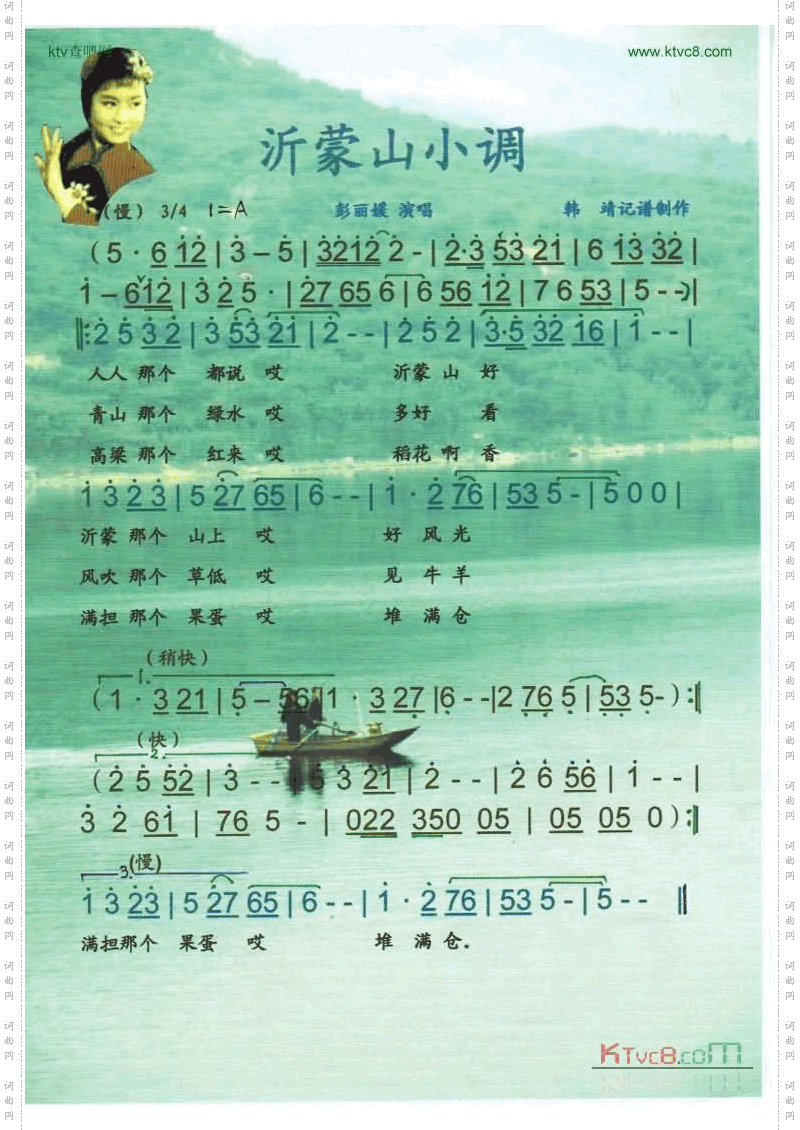 ktv查吧网 www.ktvc8.com
沂蒙山小调
（慢） 3/4 1=A 彭丽媛 演唱 韩 靖记谱制作
(5 · 6 1̇2̇ | 3̇ – 5̇ | 3̇2̇1̇2̇ 2̇ - | 2̇·3̇ 5̇3̇ 2̇1̇ | 6 1̇3̇ 3̇2̇ |
1̇ – 61̇2̇ | 3̇ 2̇ 5 · | 2̇7 65 6 | 6 56 1̇2̇ | 7 6 53 | 5 - -) |
‖: 2̇ 5 3̇ 2̇ | 3̇ 5̇3̇ 2̇1̇ | 2̇ - - | 2̇ 5 2̇ | 3̇·5̇ 3̇2̇ 1̇6 | 1̇ - - |
人人 那个 都说 哎 沂蒙 山 好
青山 那个 绿水 哎 多好 看
高粱 那个 红来 哎 稻花 啊 香
1̇ 3̇ 2̇3̇ | 5 2̇7 65 | 6 - - | 1̇ · 2̇ 76 | 53 5 - | 5 0 0 |
沂蒙 那个 山上 哎 好 风 光
风吹 那个 草低 哎 见 牛 羊
满担 那个 果蛋 哎 堆 满 仓
（稍快）
1.
(1 · 3 21 | 5̣ – 5̣6̣ | 1 · 3 27̣ | 6̣ - - | 2 7̣6̣ 5̣ | 5̣3̣ 5̣ -) :‖
（快）
2.
(2̇ 5̇ 5̇2̇ | 3̇ - - | 5̇ 3̇ 2̇1̇ | 2̇ - - | 2̇ 6̇ 5̇6̇ | 1̇ - - |
3̇ 2̇ 61̇ | 76 5 - | 022 350 05 | 05 05 0) :‖
3. (慢)
1̇ 3̇ 2̇3̇ | 5 2̇7 65 | 6 - - | 1̇ · 2̇ 76 | 53 5 - | 5 - - ‖
满担那个 果蛋 哎 堆 满 仓.
KTvc8.com
词曲网